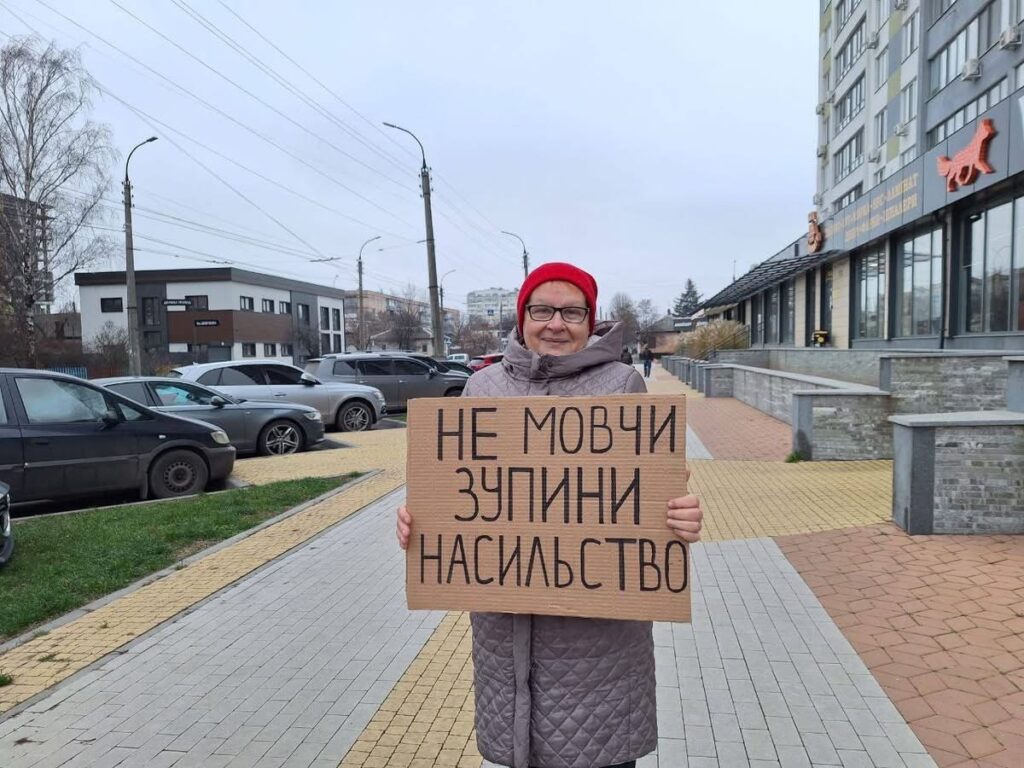 НЕ МОВЧИ
ЗУПИНИ
НАСИЛЬСТВО